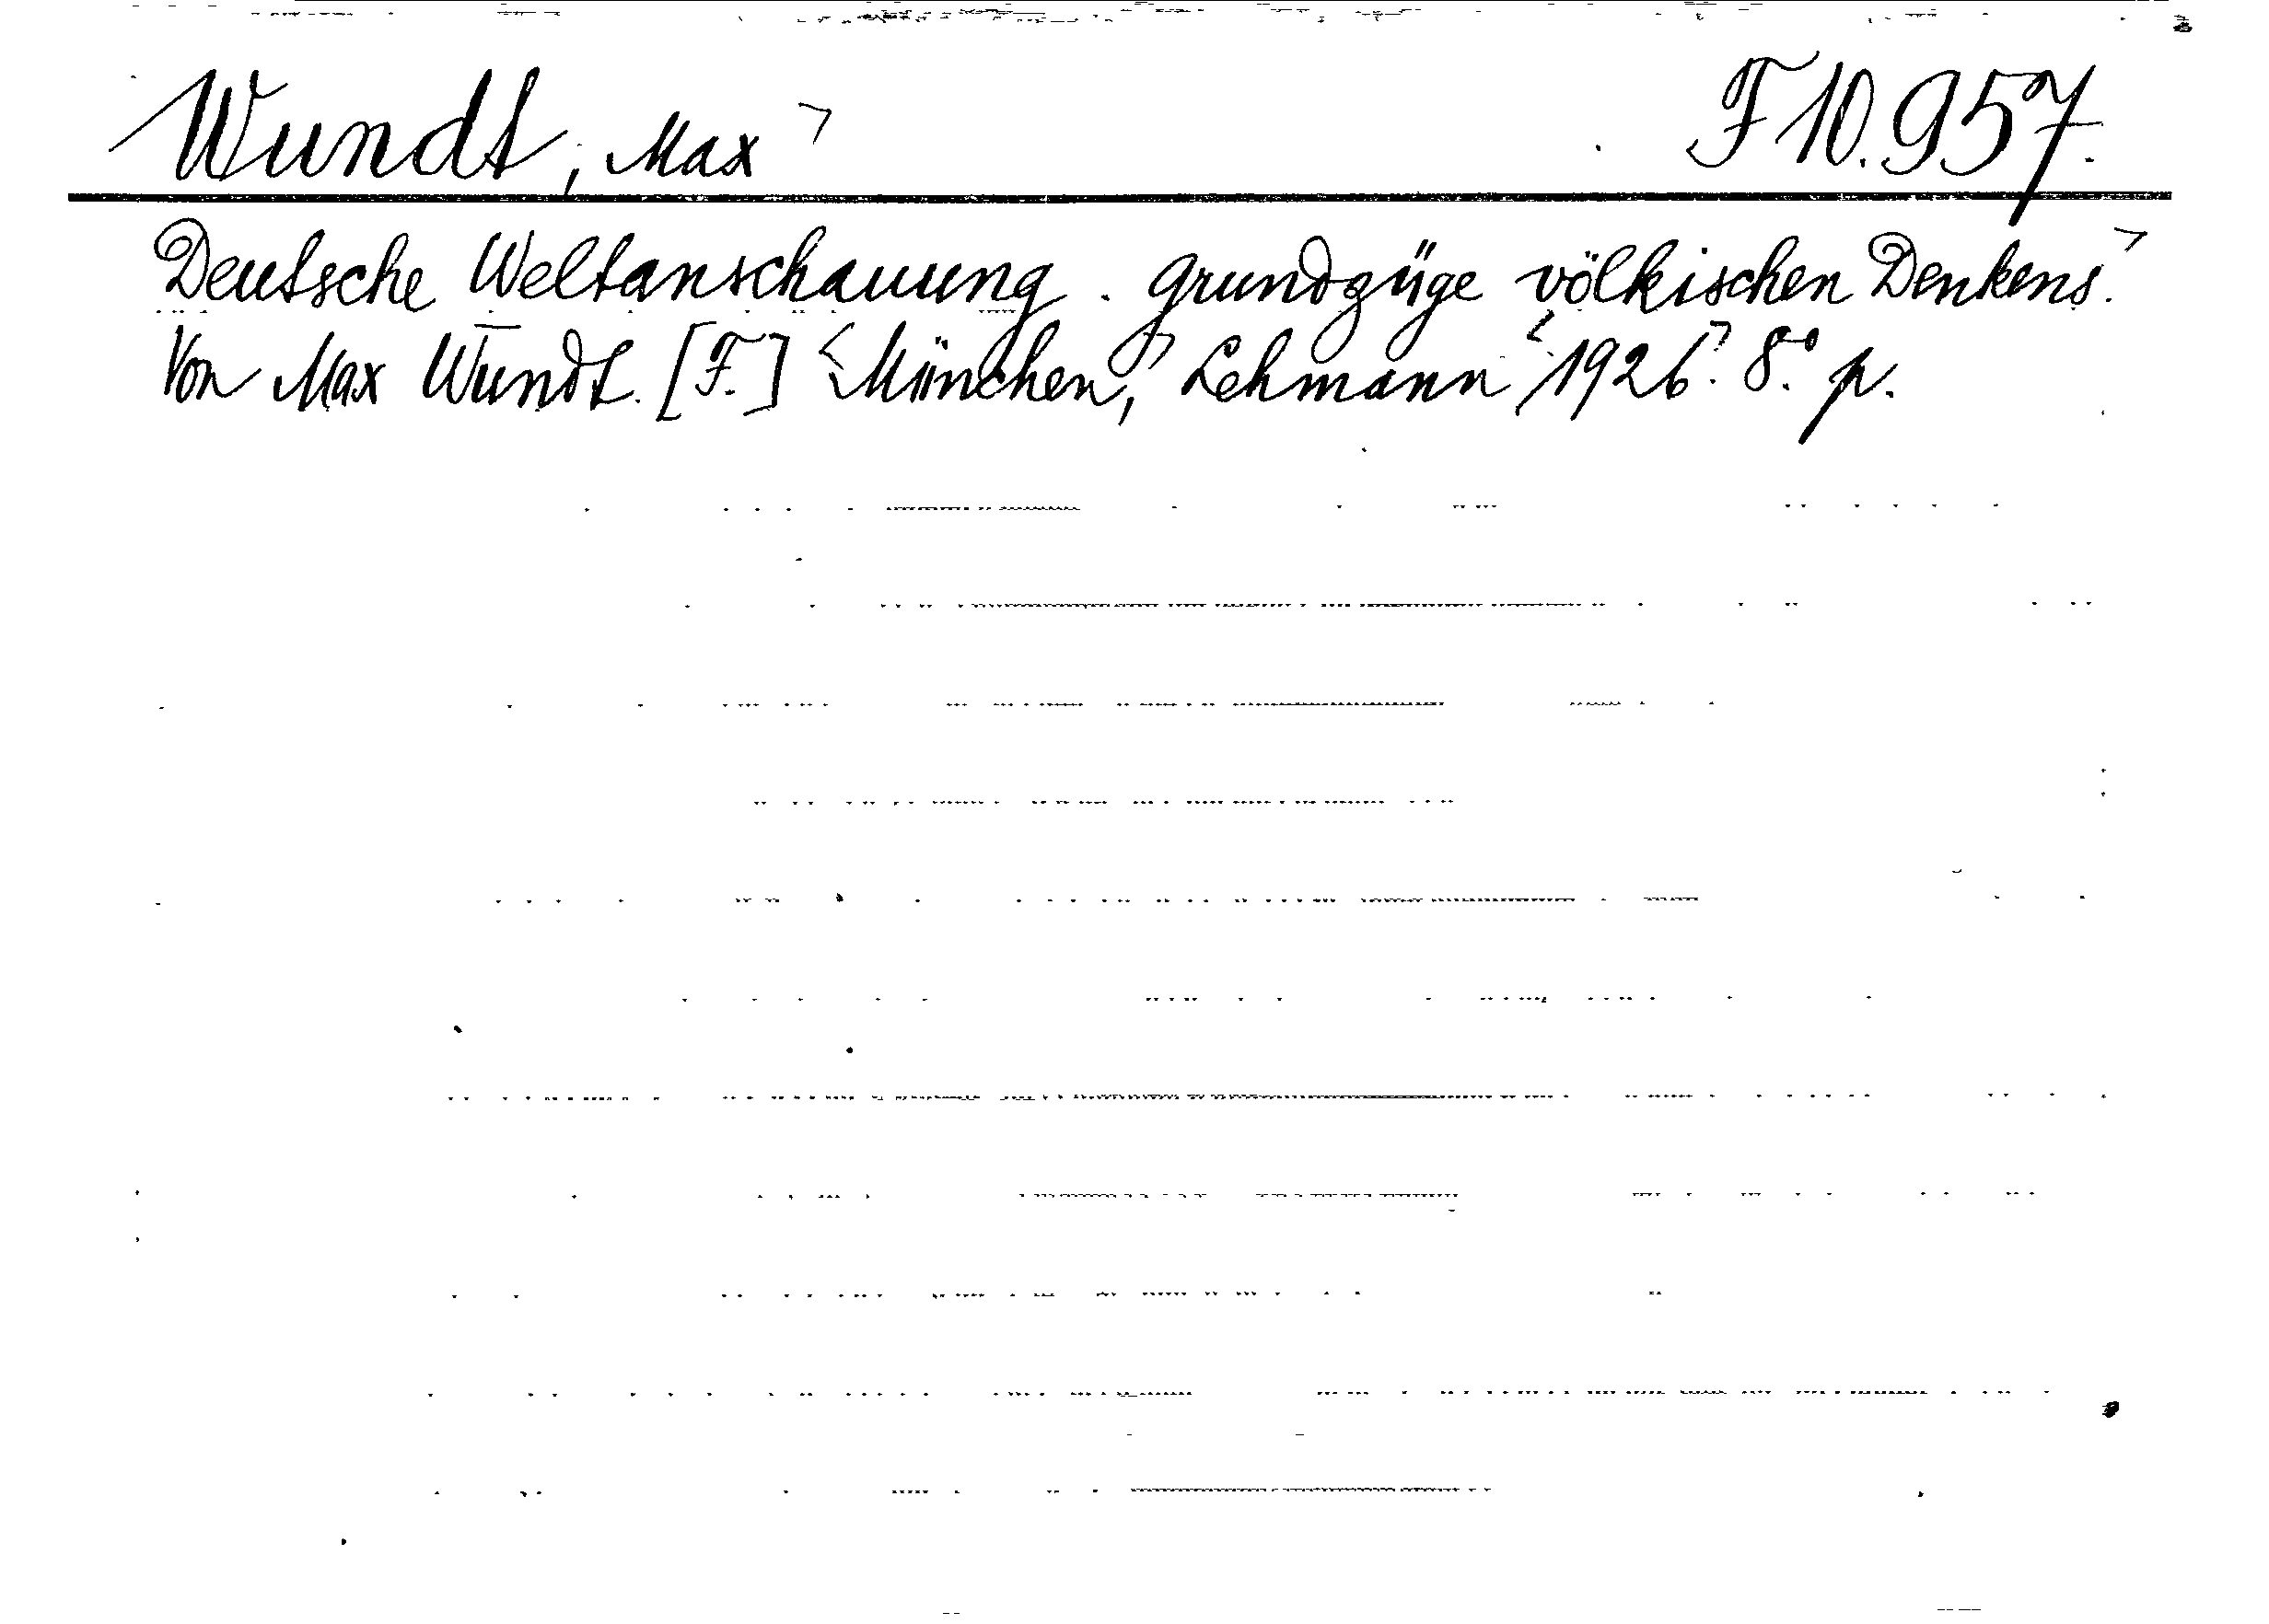 Wundt, Max F 10.957.
Deutsche Weltanschauung. Grundzüge völkischen Denkens.
Von Max Wundt. [F.] München, Lehmann 1926. 8.° p.